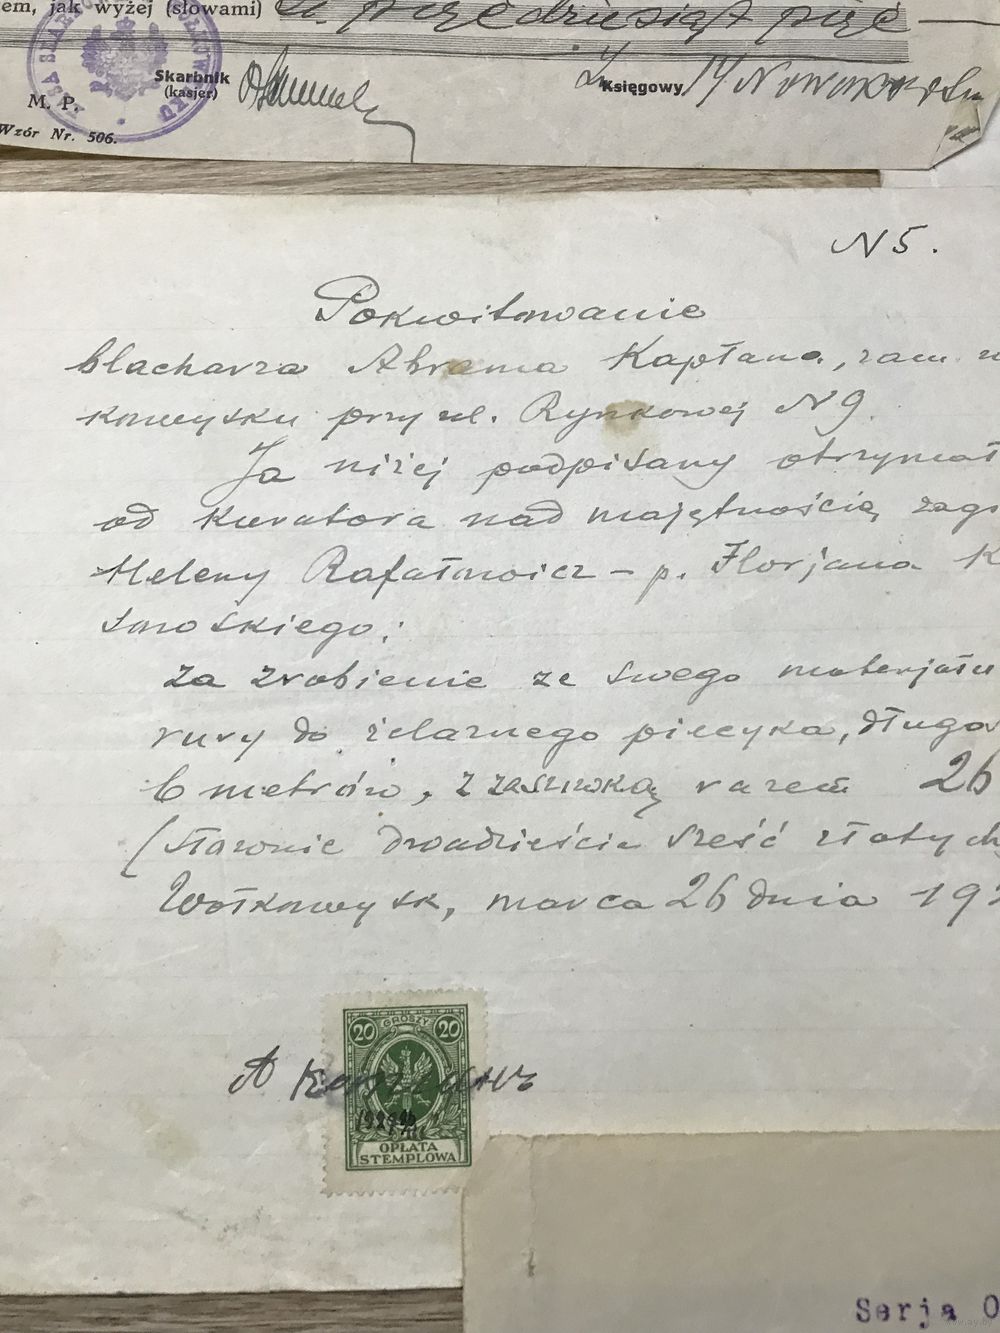 em, jak wyżej (słowami) pięćdziesiąt pięć
Skarbnik
(kasjer)
Księgowy
M. P.
Wzór Nr. 506.
N 5.
Pokwitowanie
blacharza Abrama Kapłana, zam. w
kowysku przy ul. Rynkowej N 9.
Ja niżej podpisany otrzymał
od kuratora nad majętnością zagr
Heleny Rafałowicz – p. Florjana K
smoskiego:
za zrobienie ze swego materjału
rury do żelaznego piecyka, długo
6 metrów, z zasuwką razem 26
(słownie dwadzieścia sześć złotych
Wołkowysk, marca 26 dnia 19
20 GROSZY 20
OPŁATA
STEMPLOWA
Serja O